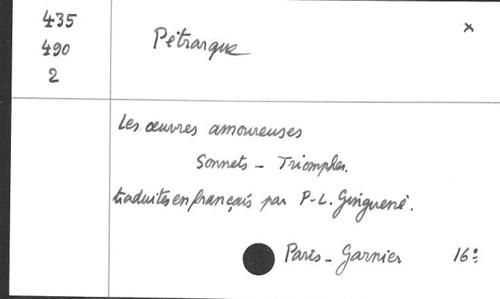 435
490
2
Pétrarque
x
Les œuvres amoureuses
Sonnets - Triomphes.
traduites en français par P-L. Ginguené.
Paris - Garnier 16º